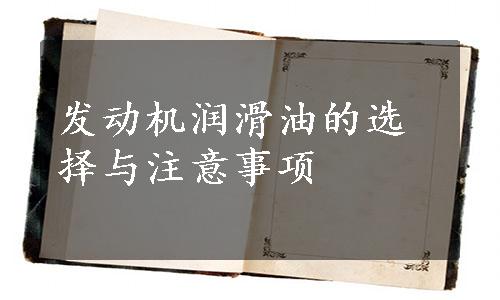 发动机润滑油的选
择与注意事项